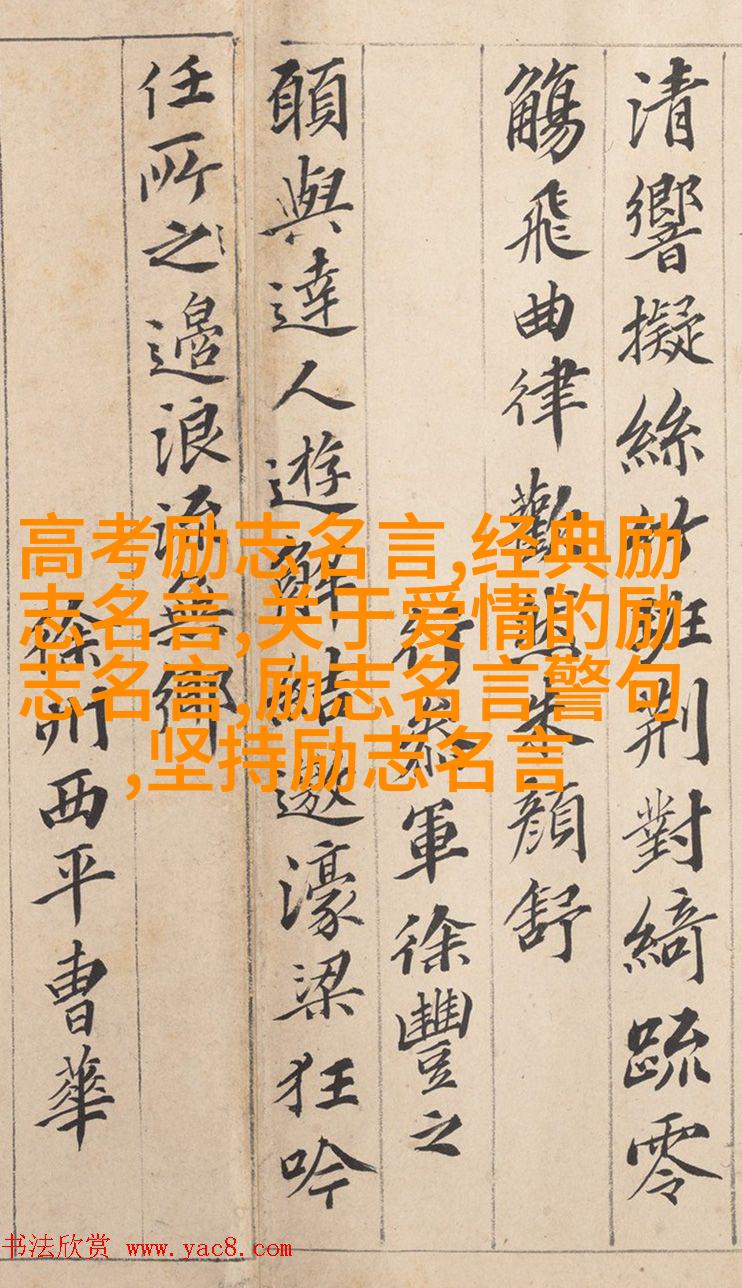 清響擬絲竹班荊對綺疏零
觴飛曲律歡然朱顏舒
行參軍徐豐之
願與達人遊解結遨濠梁狂吟
任所之邊浪流無鄉
徐州西平曹華
高考励志名言,经典励
志名言,关于爱情的励
志名言,励志名言警句
,坚持励志名言
书法欣赏 www.yac8.com